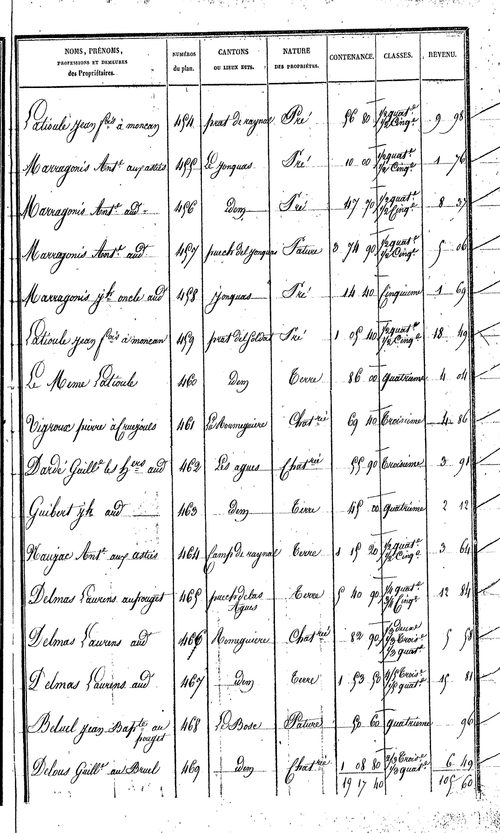 NOMS, PRÉNOMS, PROFESSIONS ET DEMEURES des Propriétaires. NUMÉROS du plan. CANTONS OU LIEUX DITS. NATURE DES PROPRIÉTÉS. CONTENANCE. CLASSES. REVENU.
Latieule jean f.cois à moncan 454 prat de raynal Pré 56 80 1/2 quat.e 1/2 Cinq.e 9 98
Marragonis Ant.e aux astriès 455 Le jonquas Pré 10 00 1/2 quat.e 1/2 Cinq.e 1 76
Marragonis Ant.e aud 456 idem Pré 47 70 1/2 quat.e 1/2 Cinq.e 8 37
Marragonis Ant.e aud 457 puech del jonquas Pature 3 74 90 1/2 quat.e 1/2 Cinq.e 5 06
Marragonis j.h oncle aud 458 jonquas Pré 14 40 Cinquieme 1 69
Latieule jean f.cois à moncan 459 prat del Soldat Pré 1 05 40 1/2 quat.e 1/2 Cinq.e 18 49
Le Meme Latieule 460 idem Terre 86 00 quatrieme 4 04
Vigroux pierre à Cruejouls 461 La Romeguiere Chat.rie 69 40 Troisieme 4 86
Dardé Guill.e les h.ers aud 462 Les agues Chat.rie 55 90 Troisieme 3 91
Guibert j.h aud 463 idem Terre 45 00 quatrieme 2 12
Nauzac Ant.e aux astriès 464 Camp de raynal Terre 1 15 20 1/2 quat.e 1/2 Cinq.e 3 64
Delmas Laurens au pouget 465 puech de las Agues Terre 5 40 90 1/4 quat.e 3/4 Cinq.e 12 84
Delmas Laurens aud 466 Romeguiere Chat.rie 82 90 1/3 deux.e 1/3 Trois.e 1/3 quat.e 5 58
Delmas Laurens aud 467 idem Terre 1 53 50 4/5 Trois.e 1/5 quat.e 15 81
Beluel jean Bap.te au pouget 468 Le Bosc Pature 50 60 quatrieme 96
Delous Guill.e au Bruel 469 idem Chat.rie 1 08 80 2/3 Trois.e 1/3 quat.e 6 49
19 17 40 105 60